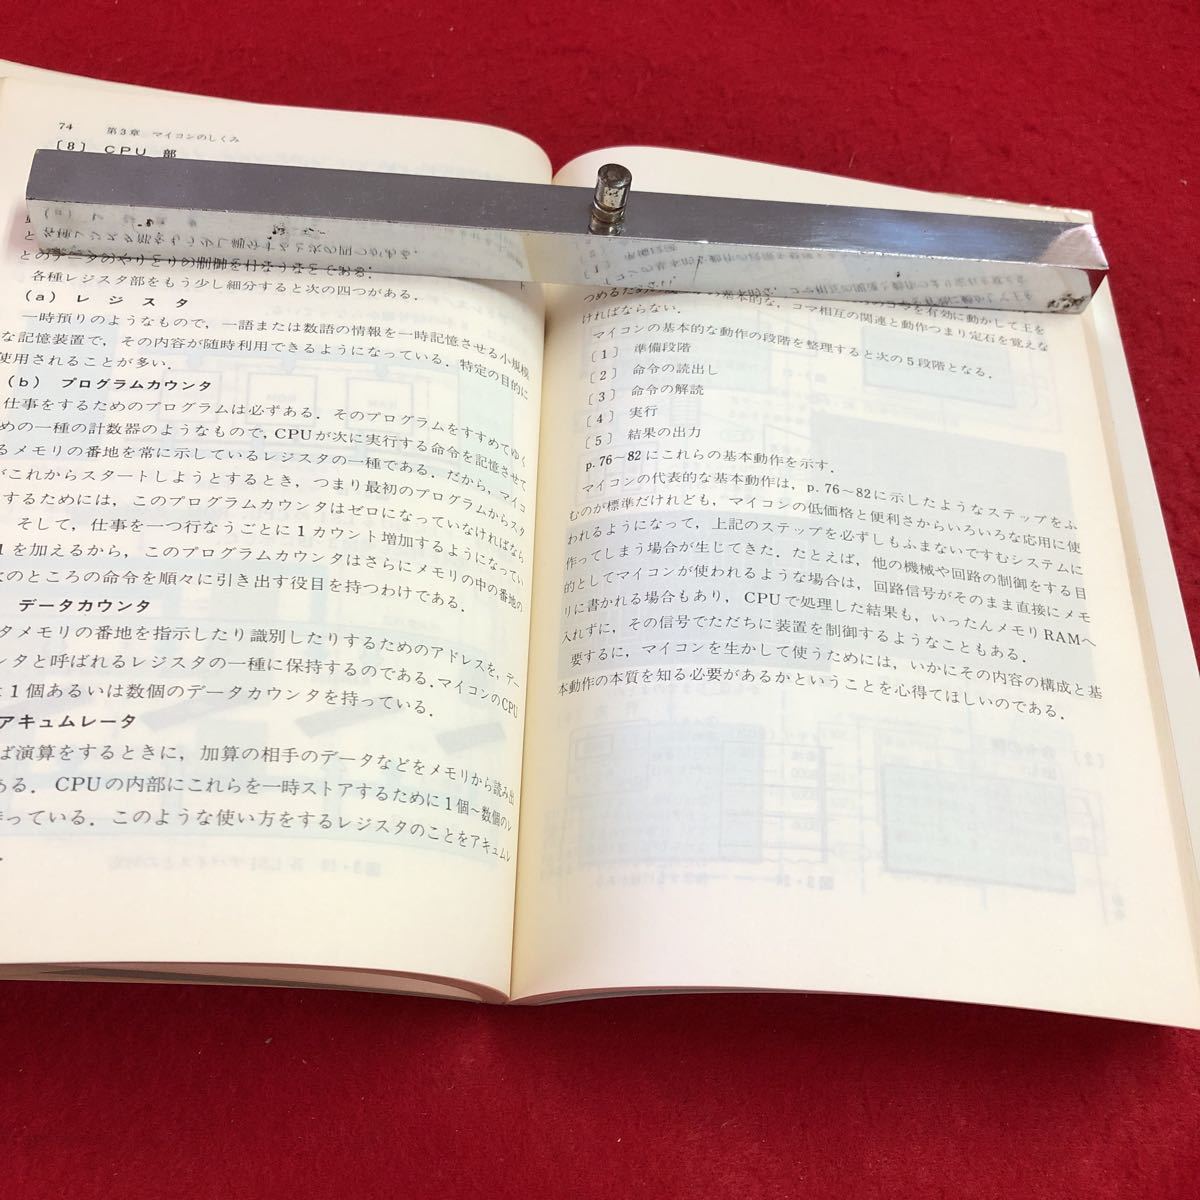 74 第3章 マイコンのしくみ
〔8〕 CPU 部
とのデータのやりとりの制御を行なうなどである．
各種レジスタ部をもう少し細分すると次の四つがある．
(a) レジスタ
一時預りのようなもので，一語または数語の情報を一時記憶させる小規模
な記憶装置で，その内容が随時利用できるようになっている．特定の目的に
使用されることが多い．
(b) プログラムカウンタ
仕事をするためのプログラムは必ずある．そのプログラムをすすめてゆく
めの一種の計数器のようなもので，CPUが次に実行する命令を記憶させて
るメモリの番地を常に示しているレジスタの一種である．だから，マイコ
がこれからスタートしようとするとき，つまり最初のプログラムからスタ
するためには，このプログラムカウンタはゼロになっていなければなら
そして，仕事を一つ行なうごとに1カウント増加するようになってい
1を加えるから，このプログラムカウンタはさらにメモリの中の番地の
次のところの命令を順々に引き出す役目を持つわけである．
データカウンタ
タメモリの番地を指示したり識別したりするためのアドレスを，デー
ンタと呼ばれるレジスタの一種に保持するのである．マイコンのCPU
は1個あるいは数個のデータカウンタを持っている．
アキュムレータ
ば演算をするときに，加算の相手のデータなどをメモリから読み出
ある．CPUの内部にこれらを一時ストアするために1個〜数個のレ
持っている．このような使い方をするレジスタのことをアキュムレ
つめるためには，の基本的な，コマ相互の関連と動作つまり定石を覚えな
ければならない．
マイコンの基本的な動作の段階を整理すると次の5段階となる．
〔1〕 準備段階
〔2〕 命令の読出し
〔3〕 命令の解読
〔4〕 実行
〔5〕 結果の出力
p.76〜82にこれらの基本動作を示す．
マイコンの代表的な基本動作は，p.76〜82に示したようなステップをふ
むのが標準だけれども，マイコンの低価格と便利さからいろいろな応用に使
われるようになって，上記のステップを必ずしもふまないですむシステムに
作ってしまう場合が生じてきた．たとえば，他の機械や回路の制御をする目
的としてマイコンが使われるような場合は，回路信号がそのまま直接にメモ
リに書かれる場合もあり，CPUで処理した結果も，いったんメモリRAMへ
入れずに，その信号でただちに装置を制御するようなこともある．
要するに，マイコンを生かして使うためには，いかにその内容の構成と基
本動作の本質を知る必要があるかということを心得てほしいのである．